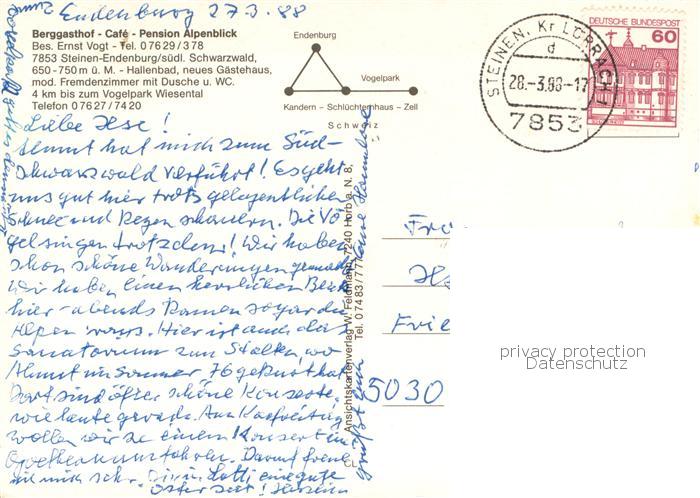 Endenburg 27.3.88
Berggasthof - Café - Pension Alpenblick
Bes. Ernst Vogt - Tel. 07629/378
7853 Steinen-Endenburg/südl. Schwarzwald,
650-750 m ü. M. - Hallenbad, neues Gästehaus,
mod. Fremdenzimmer mit Dusche u. WC.
4 km bis zum Vogelpark Wiesental
Telefon 07627/7420
Endenburg
Vogelpark
Kandern - Schlüchtenhaus - Zell
Schweiz
STEINEN, Kr LÖRRACH 1
d
28.-3.88-17
7853
DEUTSCHE BUNDESPOST
60
Liebe Ilse!
hat mich zum Süd-
schwarzwald verführt! Es geht
uns gut hier trotz gelegentlichen
Schnee und Regen schauern. Die Vö-
gel singen trotzdem! Wir haben
schon schöne Wanderungen gemacht
Wir haben einen herrlichen Blick
hier - abends kamen sogar die
Alpen raus. Hier ist auch das
Sanatorium zum Stalten, wo
im Sommer 76 gekurt hat
Dort sind öfter schöne Konzerte,
wie heute gerade. Am Karfreitag
wollen wir zu einem Konzert im
Goetheanum fahren. Darauf freue
ich mich sehr. Lotti eine gute
Osterzeit!
grüßt auch
Ansichtskartenverlag W. Feldmann, 7240 Horb a. N. 8,
Tel. 07483/777
Fr
Ils
Frie
5030
privacy protection
Datenschutz